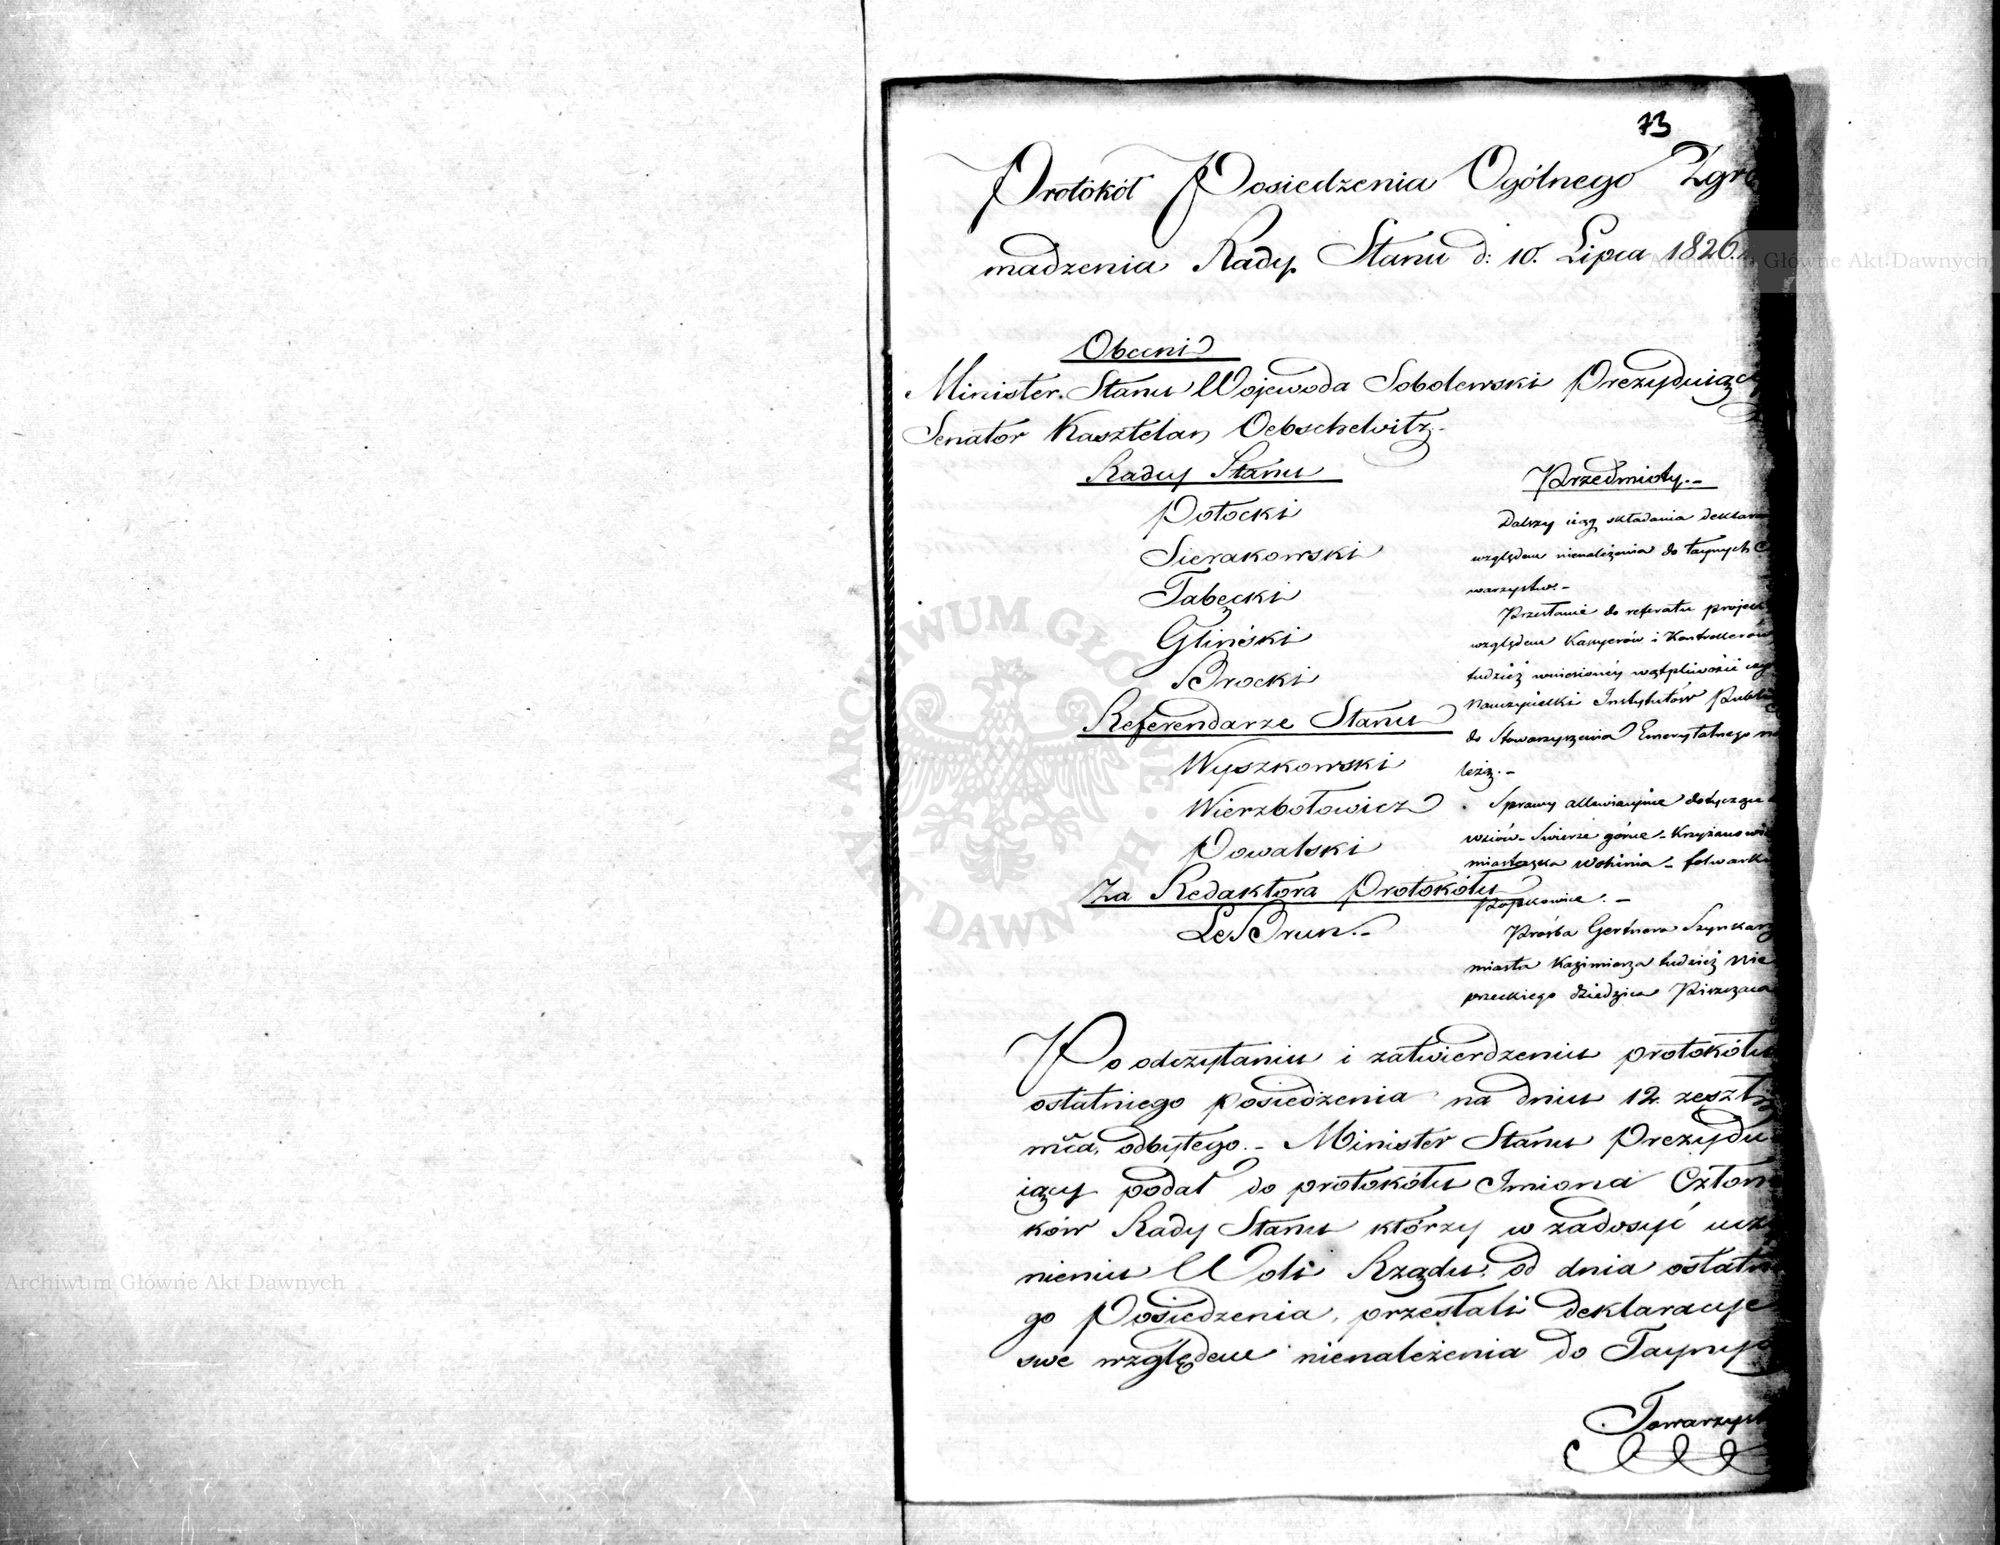 73
Protokół Posiedzenia Ogólnego Zgro
madzenia Rady Stanu d: 10. Lipca 1826.
Obecni
Minister Stanu Wojewoda Sobolewski Prezyduiący
Senator Kasztelan Oebschelwitz.
Radcy Stanu
Potocki
Sierakowski
Tabęcki
Gliński
Brocki
Referendarze Stanu
Wyszkowski
Wierzbołowicz
Powalski
Za Redaktora Protokółu
LeBrun.-
Przedmioty.-
Dalszy ciąg składania deklara
względem nienależenia do taynych
warzystw.-
Przesłanie do referatu projek
względem Kassyerów i Kontrollerów
tudzież wniesioney wątpliwości czy
Nauczycielki Instytutów Publi
do Stowarzyszenia Emerytalnego na
leżą.-
Sprawy allewiacyjne dotyczące
wsiów - Świerże górne - Krzyżanowi
miasteczka Wohinia - folwarku
Prośba Gertnera Szynkarz
miasta Kazimierza tudzież Nie
przeckiego dziedzica
Po odczytaniu i zatwierdzeniu protokółu
ostatniego posiedzenia na dniu 12. zeszł
mca, odbytego.- Minister Stanu Prezydu
iący podał do protokółu Imiona Człon
ków Rady Stanu którzy w zadosyć uczy
nieniu Woli Rządu, od dnia ostatn
go Posiedzenia, przesłali deklaracye
swe względem nienależenia do Taynych
Towarzyst
Archiwum Główne Akt Dawnych
Archiwum Główne Akt Dawnych
ARCHIWUM GŁÓWNE AKT DAWNYCH